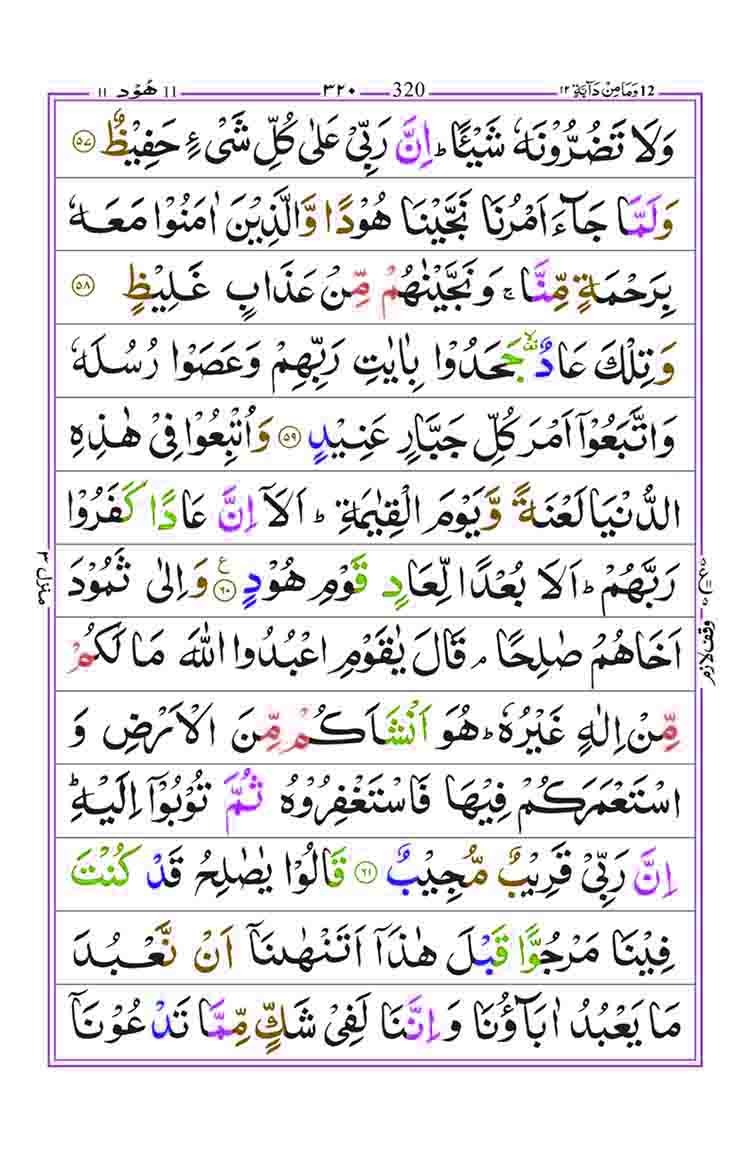 12 وَمَا مِنْ دَآبَّةٍ ١٢ — 320 — ٣٢٠ — 11 هُوْد ١١
وَلَا تَضُرُّوْنَهٗ شَيْـًٔا ؕ اِنَّ رَبِّىْ عَلٰى كُلِّ شَىْءٍ حَفِيْظٌ ‏﴿۵۷﴾
وَلَمَّا جَآءَ اَمْرُنَا نَجَّيْنَا هُوْدًا وَّالَّذِيْنَ اٰمَنُوْا مَعَهٗ
بِرَحْمَةٍ مِّنَّا ۚ وَنَجَّيْنٰهُمْ مِّنْ عَذَابٍ غَلِيْظٍ ﴿۵۸﴾
وَتِلْكَ عَادٌ ۙ۟ جَحَدُوْا بِاٰيٰتِ رَبِّهِمْ وَعَصَوْا رُسُلَهٗ
وَاتَّبَعُوْۤا اَمْرَ كُلِّ جَبَّارٍ عَنِيْدٍ ﴿۵۹﴾ وَاُتْبِعُوْا فِىْ هٰذِهِ
الدُّنْيَا لَعْنَةً وَّيَوْمَ الْقِيٰمَةِ ؕ اَلَاۤ اِنَّ عَادًا كَفَرُوْا
رَبَّهُمْ ؕ اَلَا بُعْدًا لِّعَادٍ قَوْمِ هُوْدٍ ﴿۶۰﴾ ع وَاِلٰى ثَمُوْدَ
اَخَاهُمْ صٰلِحًا ۘ قَالَ يٰقَوْمِ اعْبُدُوا اللّٰهَ مَا لَكُمْ
مِّنْ اِلٰهٍ غَيْرُهٗ ؕ هُوَ اَنْشَاَكُمْ مِّنَ الْاَرْضِ وَ
اسْتَعْمَرَكُمْ فِيْهَا فَاسْتَغْفِرُوْهُ ثُمَّ تُوْبُوْۤا اِلَيْهِ ؕ
اِنَّ رَبِّىْ قَرِيْبٌ مُّجِيْبٌ ﴿۶۱﴾ قَالُوْا يٰصٰلِحُ قَدْ كُنْتَ
فِيْنَا مَرْجُوًّا قَبْلَ هٰذَاۤ اَتَنْهٰىنَاۤ اَنْ نَّعْبُدَ
مَا يَعْبُدُ اٰبَآؤُنَا وَاِنَّنَا لَفِىْ شَكٍّ مِّمَّا تَدْعُوْنَاۤ
وقف لازم
منزل ٣